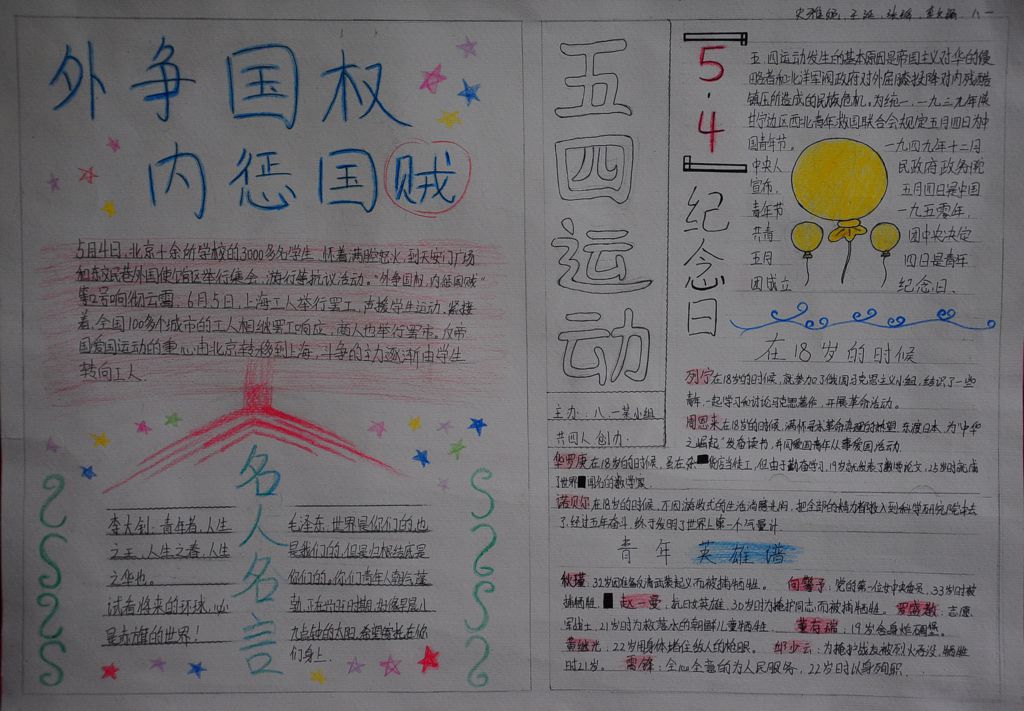 外争国权
内惩国贼
5月4日,北京十余所学校的3000多名学生 怀着满腔怒火,到天安门广场
和东交民巷外国使馆区举行集会,游行等抗议活动。"外争国权,内惩国贼"
等口号响彻云霄。6月5日,上海工人举行罢工,声援学生运动,紧接
着,全国100多个城市的工人相继罢工响应,商人也举行罢市,反帝
国爱国运动的重心由北京转移到上海,斗争的主力逐渐由学生
转向工人.
名人名言
李大钊:青年者,人生
之王,人生之春,人生
之华也。
试看将来的环球,必
是赤旗的世界!
毛泽东:世界是你们的,也
是我们的,但是归根结底是
你们的。你们青年人朝气蓬
勃,正在兴旺时期,好像早晨八
九点钟的太阳.希望寄托在你
们身上.
五四运动
主办:八.一某小组
共四人 创办:
5.4
纪念日
五.四运动发生的基本原因是帝国主义对华的侵
略者和北洋军阀政府对外屈膝投降对内残酷
镇压所造成的民族危机,为统一,一九三九年陕
甘宁边区西北青年救国联合会规定五月四日为中
国青年节。 一九四九年十二月
中央人 民政府政务院
宣布, 五月四日是中国
青年节 一九五零年,
共青 团中央决定
五月 四日是青年
团成立 纪念日、
在18岁的时候
列宁在18岁的时候,就参加了俄国马克思主义小组,结识了一些
青年,一起学习和讨论马克思著作,开展革命活动。
周恩来在18岁的时候,满怀寻求革命真理的热望,东渡日本,为"中华
之崛起"发奋读书,并同爱国青年从事爱国活动.
华罗庚在18岁的时候,虽在杂货店当佳工,但由于勤奋学习,19岁就发表了数学论文,25岁时就成
了世界闻名的数学家.
诺贝尔在18岁的时候,不因游戏式的生活消磨光阴,把全部的精力都投入到科学研究院中去
了,经过五年奋斗,终于发明了世界上第一个气量计.
青年英雄谱
秋瑾:32岁因准备反清武装起义而被捕牺牲。 向警予:党的第一位女中央委员,33岁时被
捕牺牲. 赵一曼:抗日女英雄,30岁时为掩护同志而被捕牺牲。罗盛教:志愿
军战士,21岁时为救落水的朝鲜儿童牺牲. 董存瑞:19岁舍身炸碉堡。
黄继光:22岁用身体堵住敌人的枪眼。 邱少云:为掩护战友被烈火吞没,牺牲
时21岁。 雷锋:全心全意的为人民服务,22岁时以身殉职.